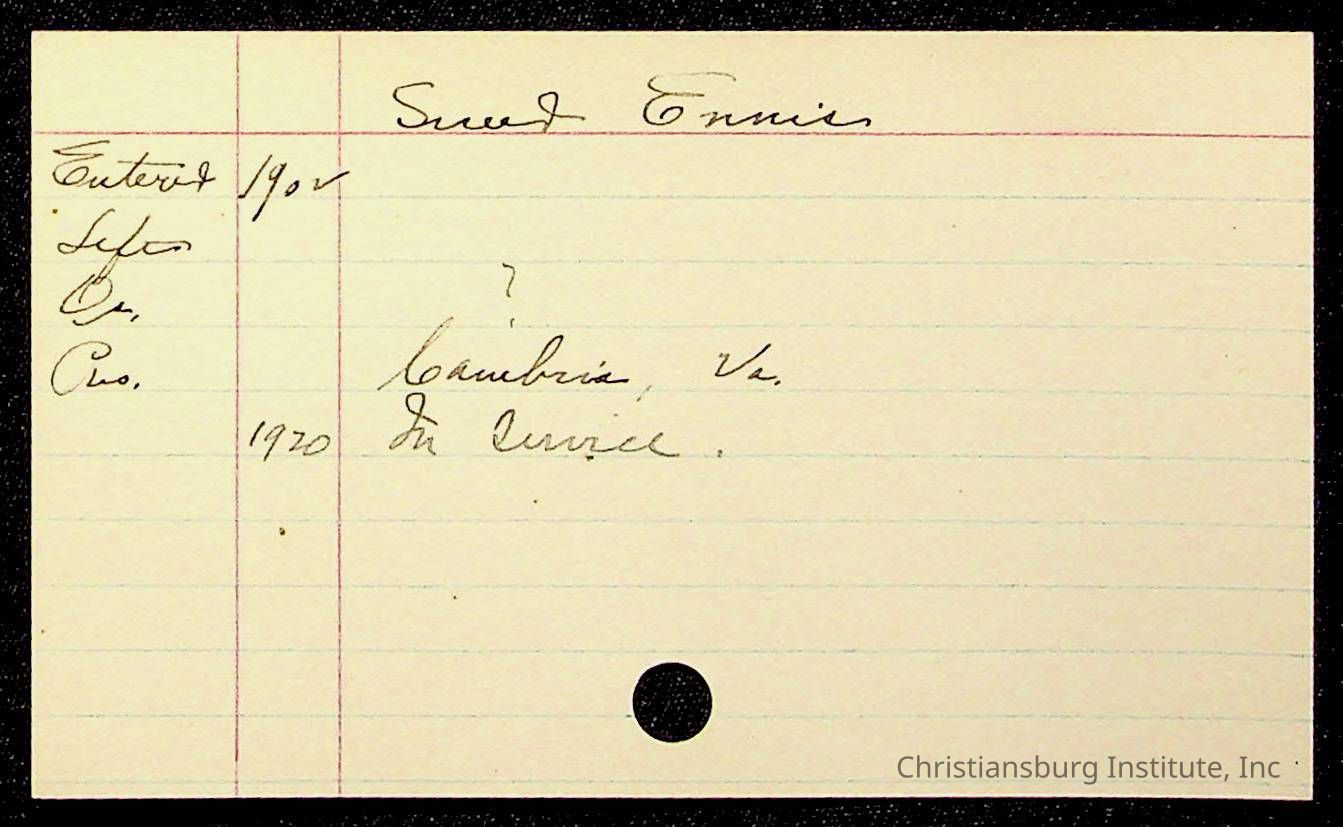 Sneed Ennis
Entered 1902
Left
Or.
?
Pro. Cambria, Va.
1920 In Service.
Christiansburg Institute, Inc